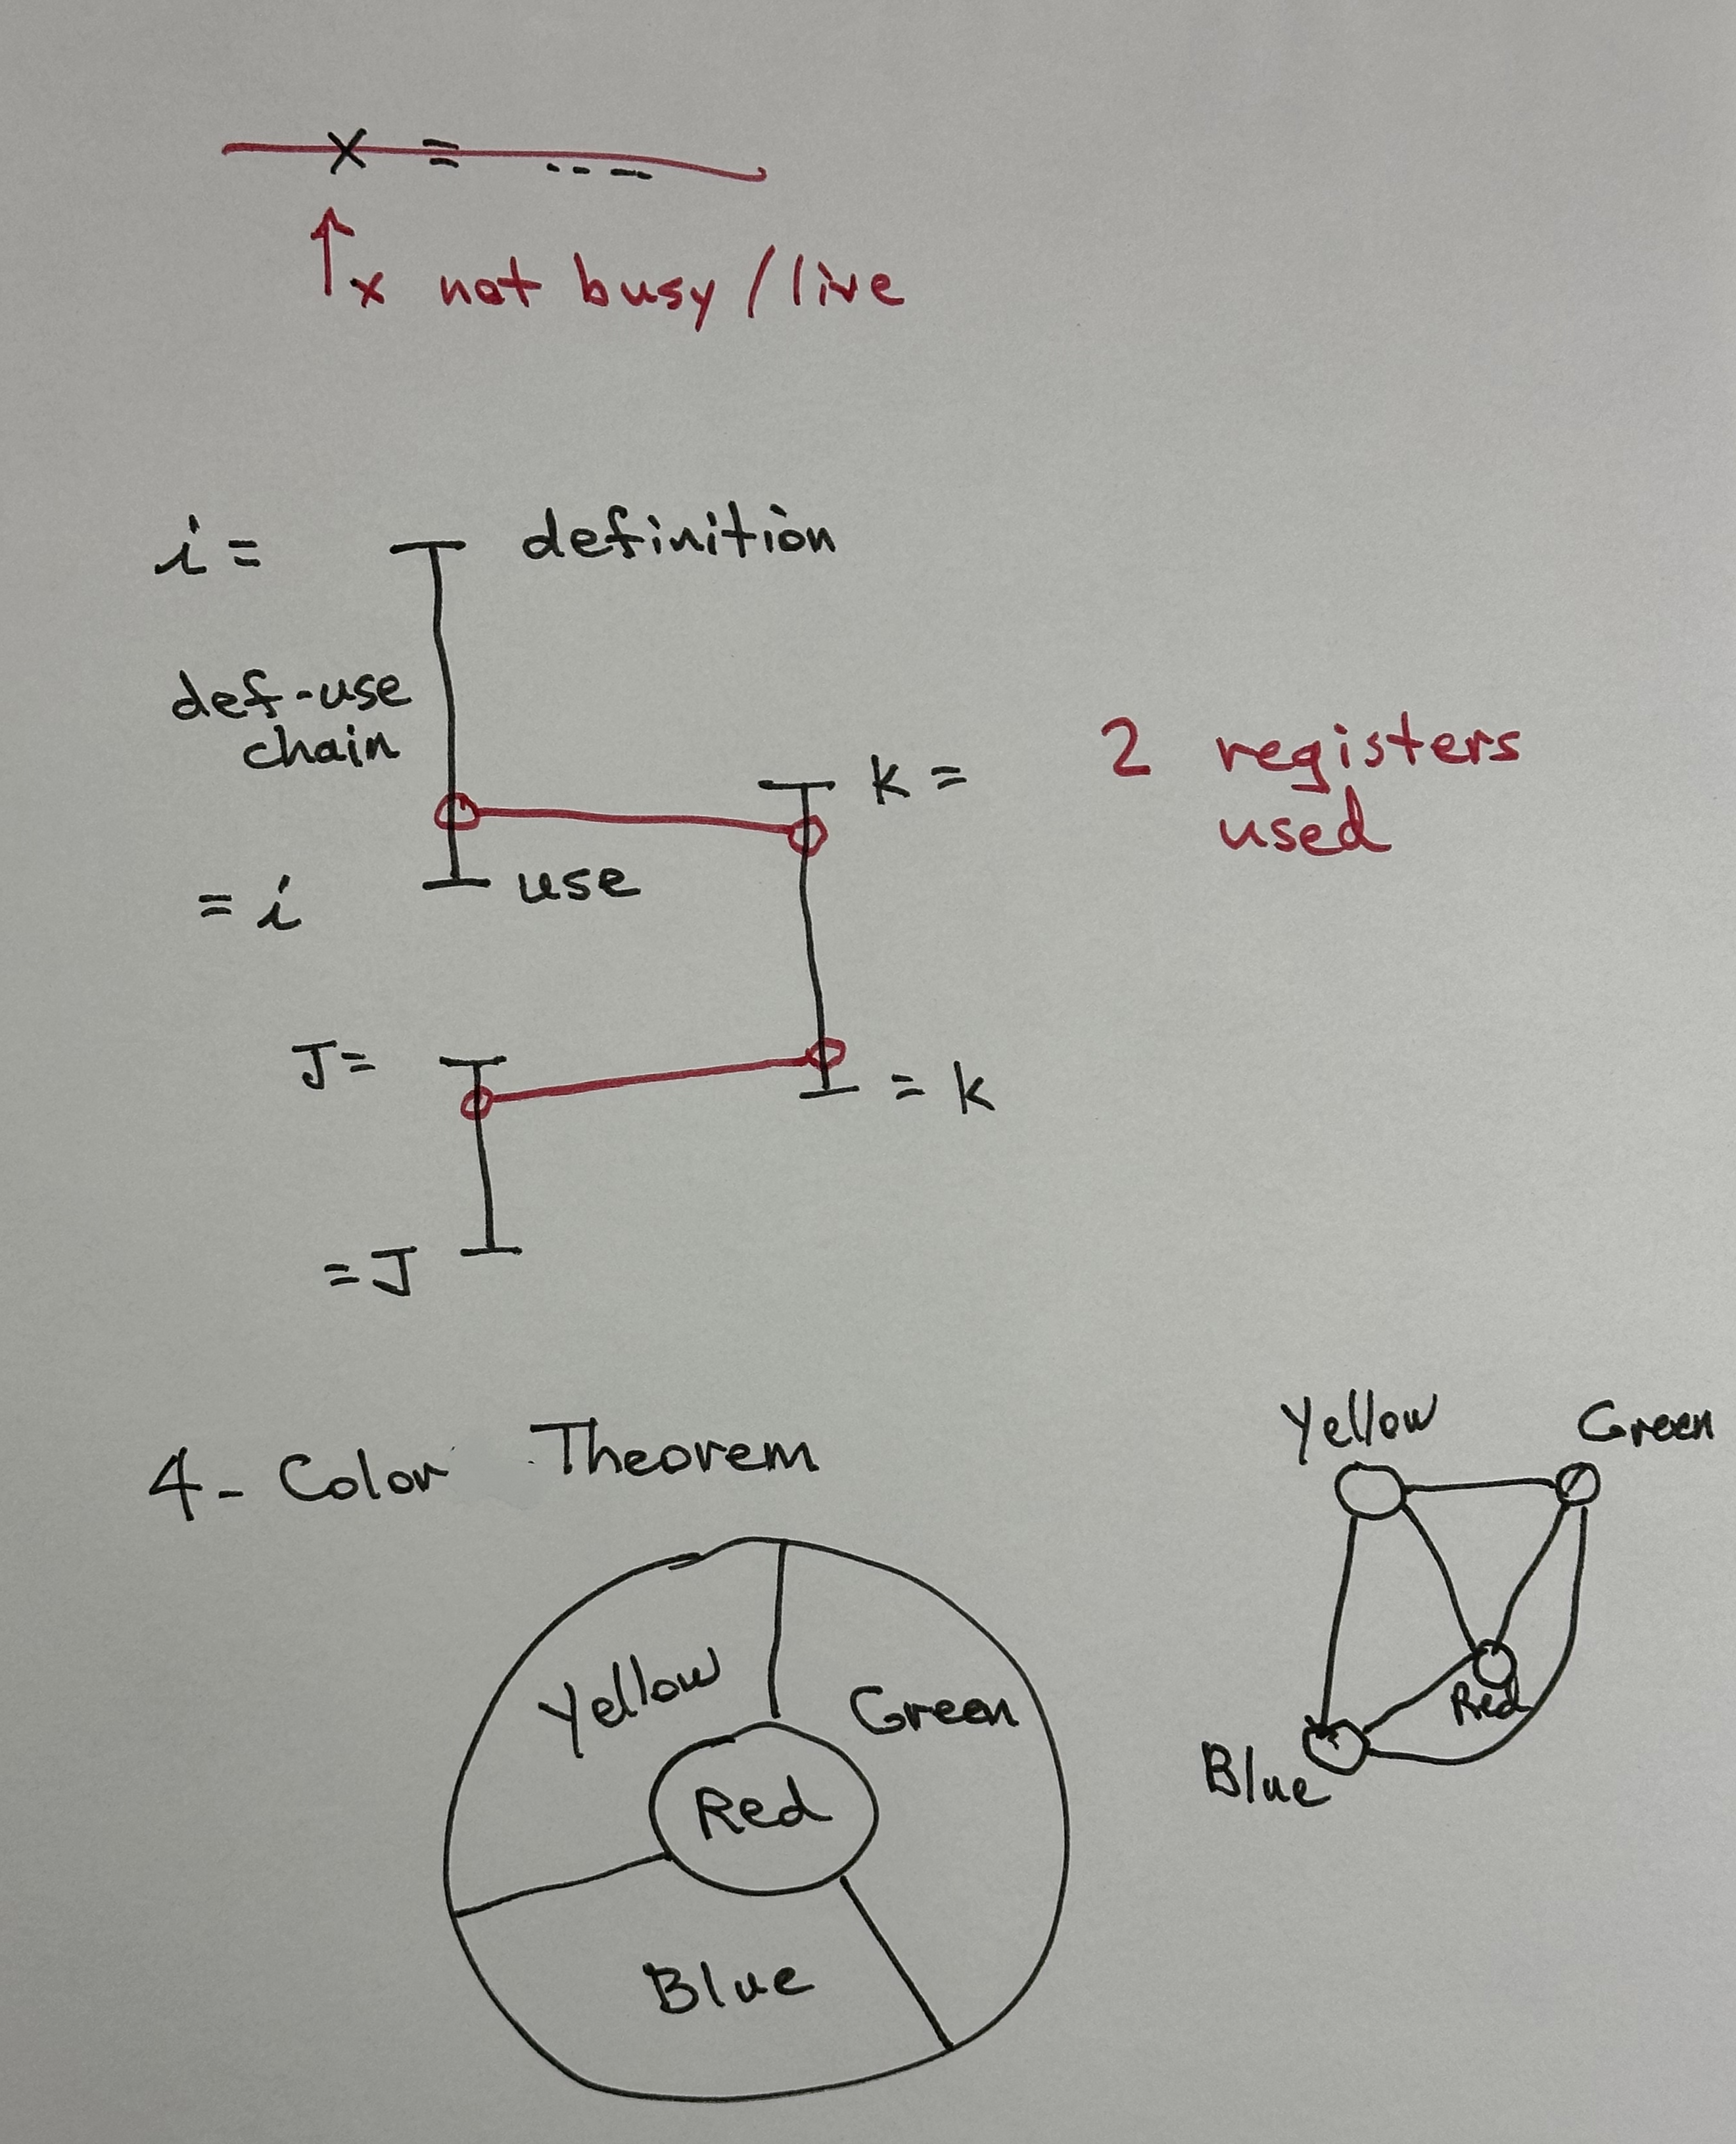 x = ----
x not busy / live
i = definition
def-use
chain
k =
2 registers
used
= i use
J =
= k
= J
4 - Color Theorem
Yellow Green
Red
Blue
Yellow Green
Red
Blue